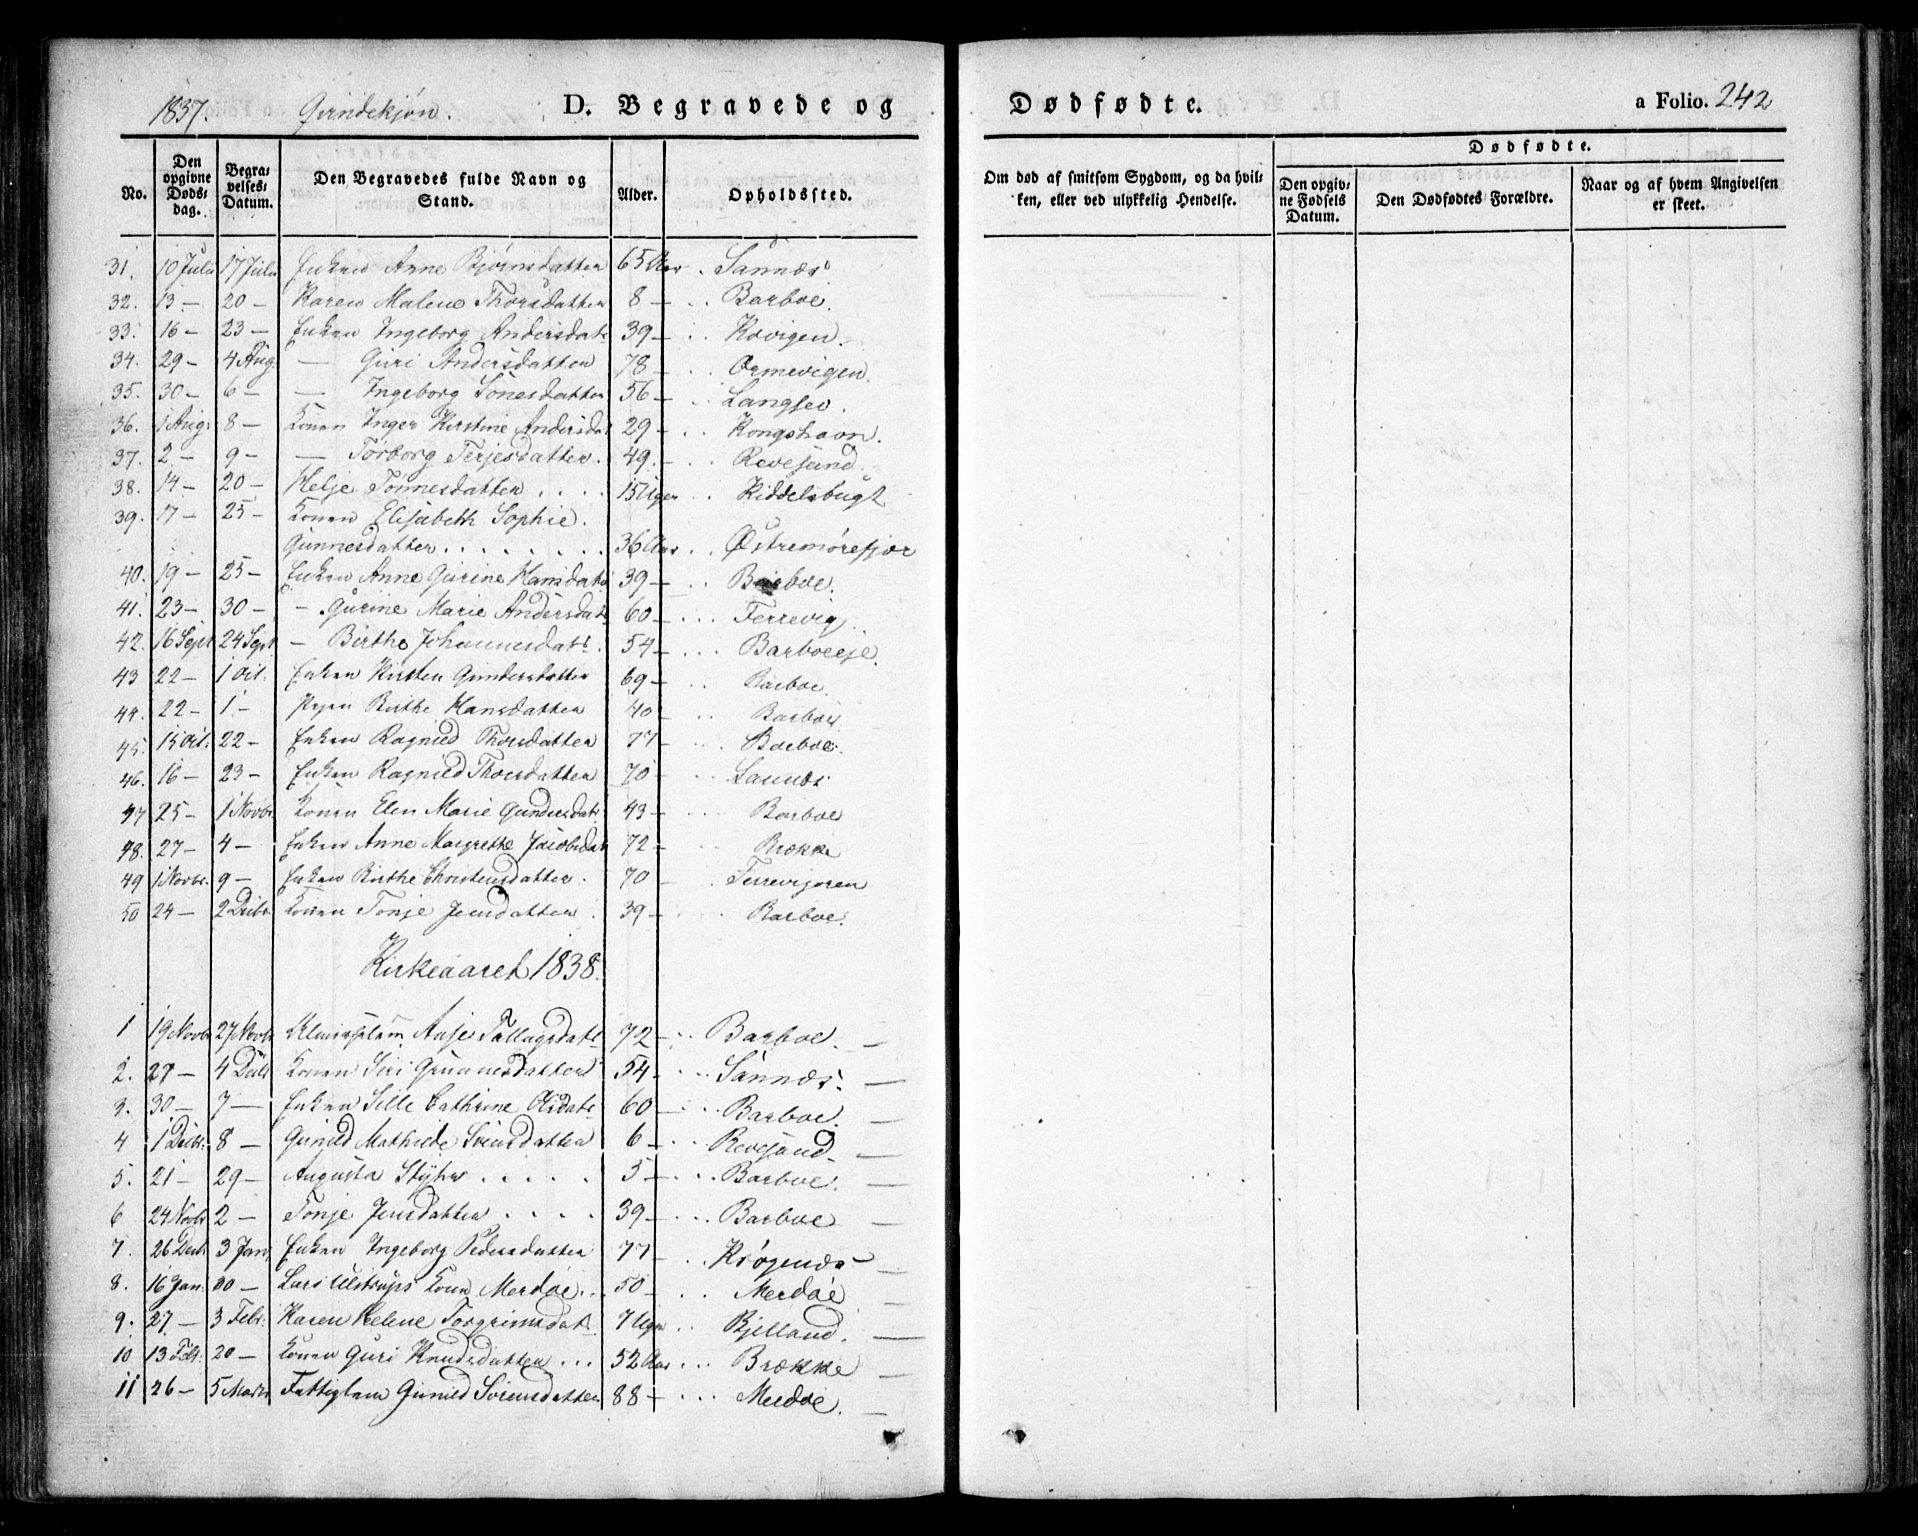 1837. Qvindekjøn. D. Begravede og
No. Den opgivne Døds-dag. Begra-velses-Datum. Den Begravedes fulde Navn og Stand. Alder. Opholdssted.
31. 10 Juli 17 Juli Enken Anne Bjørnsdatter 65 Aar . Sannæs
32. 13 — 20 — Karen Malene Thorsdatter 8 — . . Barboe.
33. 16 — 23 — Enken Ingeborg Andersdatr 39 — . . Kovigen.
34. 29 — 4 Aug. — Guri Andersdatter 78 — . . Ormevigen.
35. 30 — 6 — — Ingeborg Tonesdatter 56 — . . Langsev.
36. 1 Aug. 8 — Konen Inger Kirstine Andersdat 29 — . . Kongshavn.
37. 2 — 9 — — Torborg Terjesdatter. 49. — . . Revesand.
38. 14 — 20 — Helje Tønnesdatter . . . . 15 Uger . . Kiddelsbugt
39. 17 — 25 — Konen Elisabeth Sophie.
Gunnesdatter . . . . . . . . 36 Aar . . Østremørefjær
40. 19 — 25 — Enken Anne Gurine Hansdatr 39 — . . Barboe.
41. 23 — 30 — — Gurine Marie Andersdatr 60 — . . . Terrevig.
42. 16 Sept 24 Sept — Birthe Johannesdatr. 54 — . . . Barboeeje.
43 22 — 1 Oct. Enken Kirsten Gundersdatter 69 — . . Barboe.
44. 22 — 1 — Pigen Birthe Hansdatter 40 — . . Barboe
45. 15 Oct. 22 — Enken Ragnild Thorsdatter 77 — . . Barboe.
46. 16 — 23 — Enken Ragnild Thorsdatter 70 — . . Sannæs
47 25 — 1 Novbr. Konen Elen Marie Gundersdatr 43 — . . Barboe
48. 27 — 4 — Enken Anne Margrethe Jacobsdat 72 — . . Brække
49 1 Novbr. 9 — Enken Birthe Christensdatter. 70 — . Terrevigoren
50 24 — 2 Decbr. Konen Tonje Jensdatter . 39 — . . . Barboe.
Kirkeaaret 1838.
1 19 Novbr 27 Novbr Aasje Tallagsdatr 72 — . . Barboe. —
2. 27 — 4 Decbr Konen Siri Gunnesdatter 54 — . . . Sannæs. —
3. 30 — 7 — Enken Sille Cathrine Olsdatr 60 — . . . Barboe. —
4 1 Decbr. 8 — Gunild Mathilde Svensdatter 6 — . . . Revesand. —
5. 21 — 29 — Augusta . . . . . 5 — . . . Barboe. —
6 24 Novbr 2 — Tonje Jensdatter . . . . 39 — . . . Barboe —
7. 26 Decbr 3 Jan. Enken Ingeborg Pedersdatter 77 — . . Krøgenæs —
8. 16 Jan. 30 — Lars Ulstrups Kone Merdøe . . 50 — . . Merdøe —
9. 27 — 3 Febr. Karen Helene Torgrimsdatr 7 Uger . . Bjelland. —
10 13 Febr. 20 — Konen Guri Knudsdatter . . . 52 Aar . . . Brække —
11 26 — 5 Marts Fattiglem Gunild Svensdatter 88 — . . . Merdøe. —
Dødfødte. a Folio. 242
Om død af smitsom Sygdom, og da hvil-ken, eller ved ulykkelig Hendelse. Dødfødte.
Den opgiv-ne Fødsels Datum. Den Dødfødtes Forældre. Naar og af hvem Angivelsen er skeet.